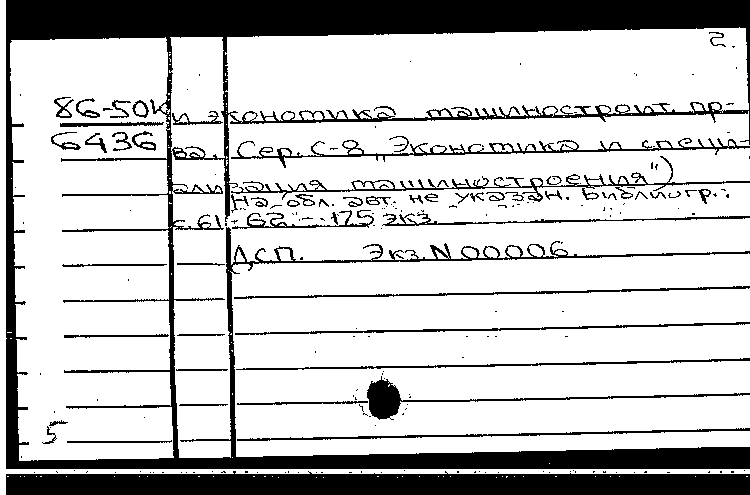 2.
86-50К и экономика машиностроит. пр-
6436 ва. Сер. С-8 „Экономика и специ-
ализация машиностроения")
На обл. авт. не указан. Библиогр.:
с. 61-62. - 175 экз.
ДСП. Экз. N 00006.
5